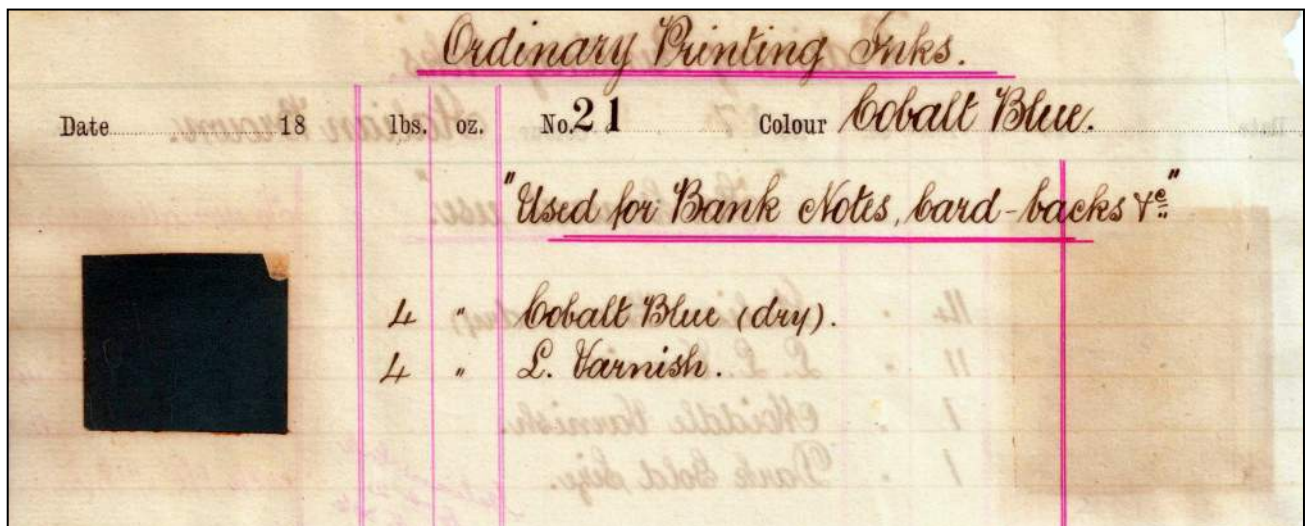 Ordinary Printing Inks.
Date 18 lbs. oz. No. 21 Colour Cobalt Blue.
"Used for Bank Notes, Card-backs &c."
4 " Cobalt Blue (dry).
4 " L. Varnish.